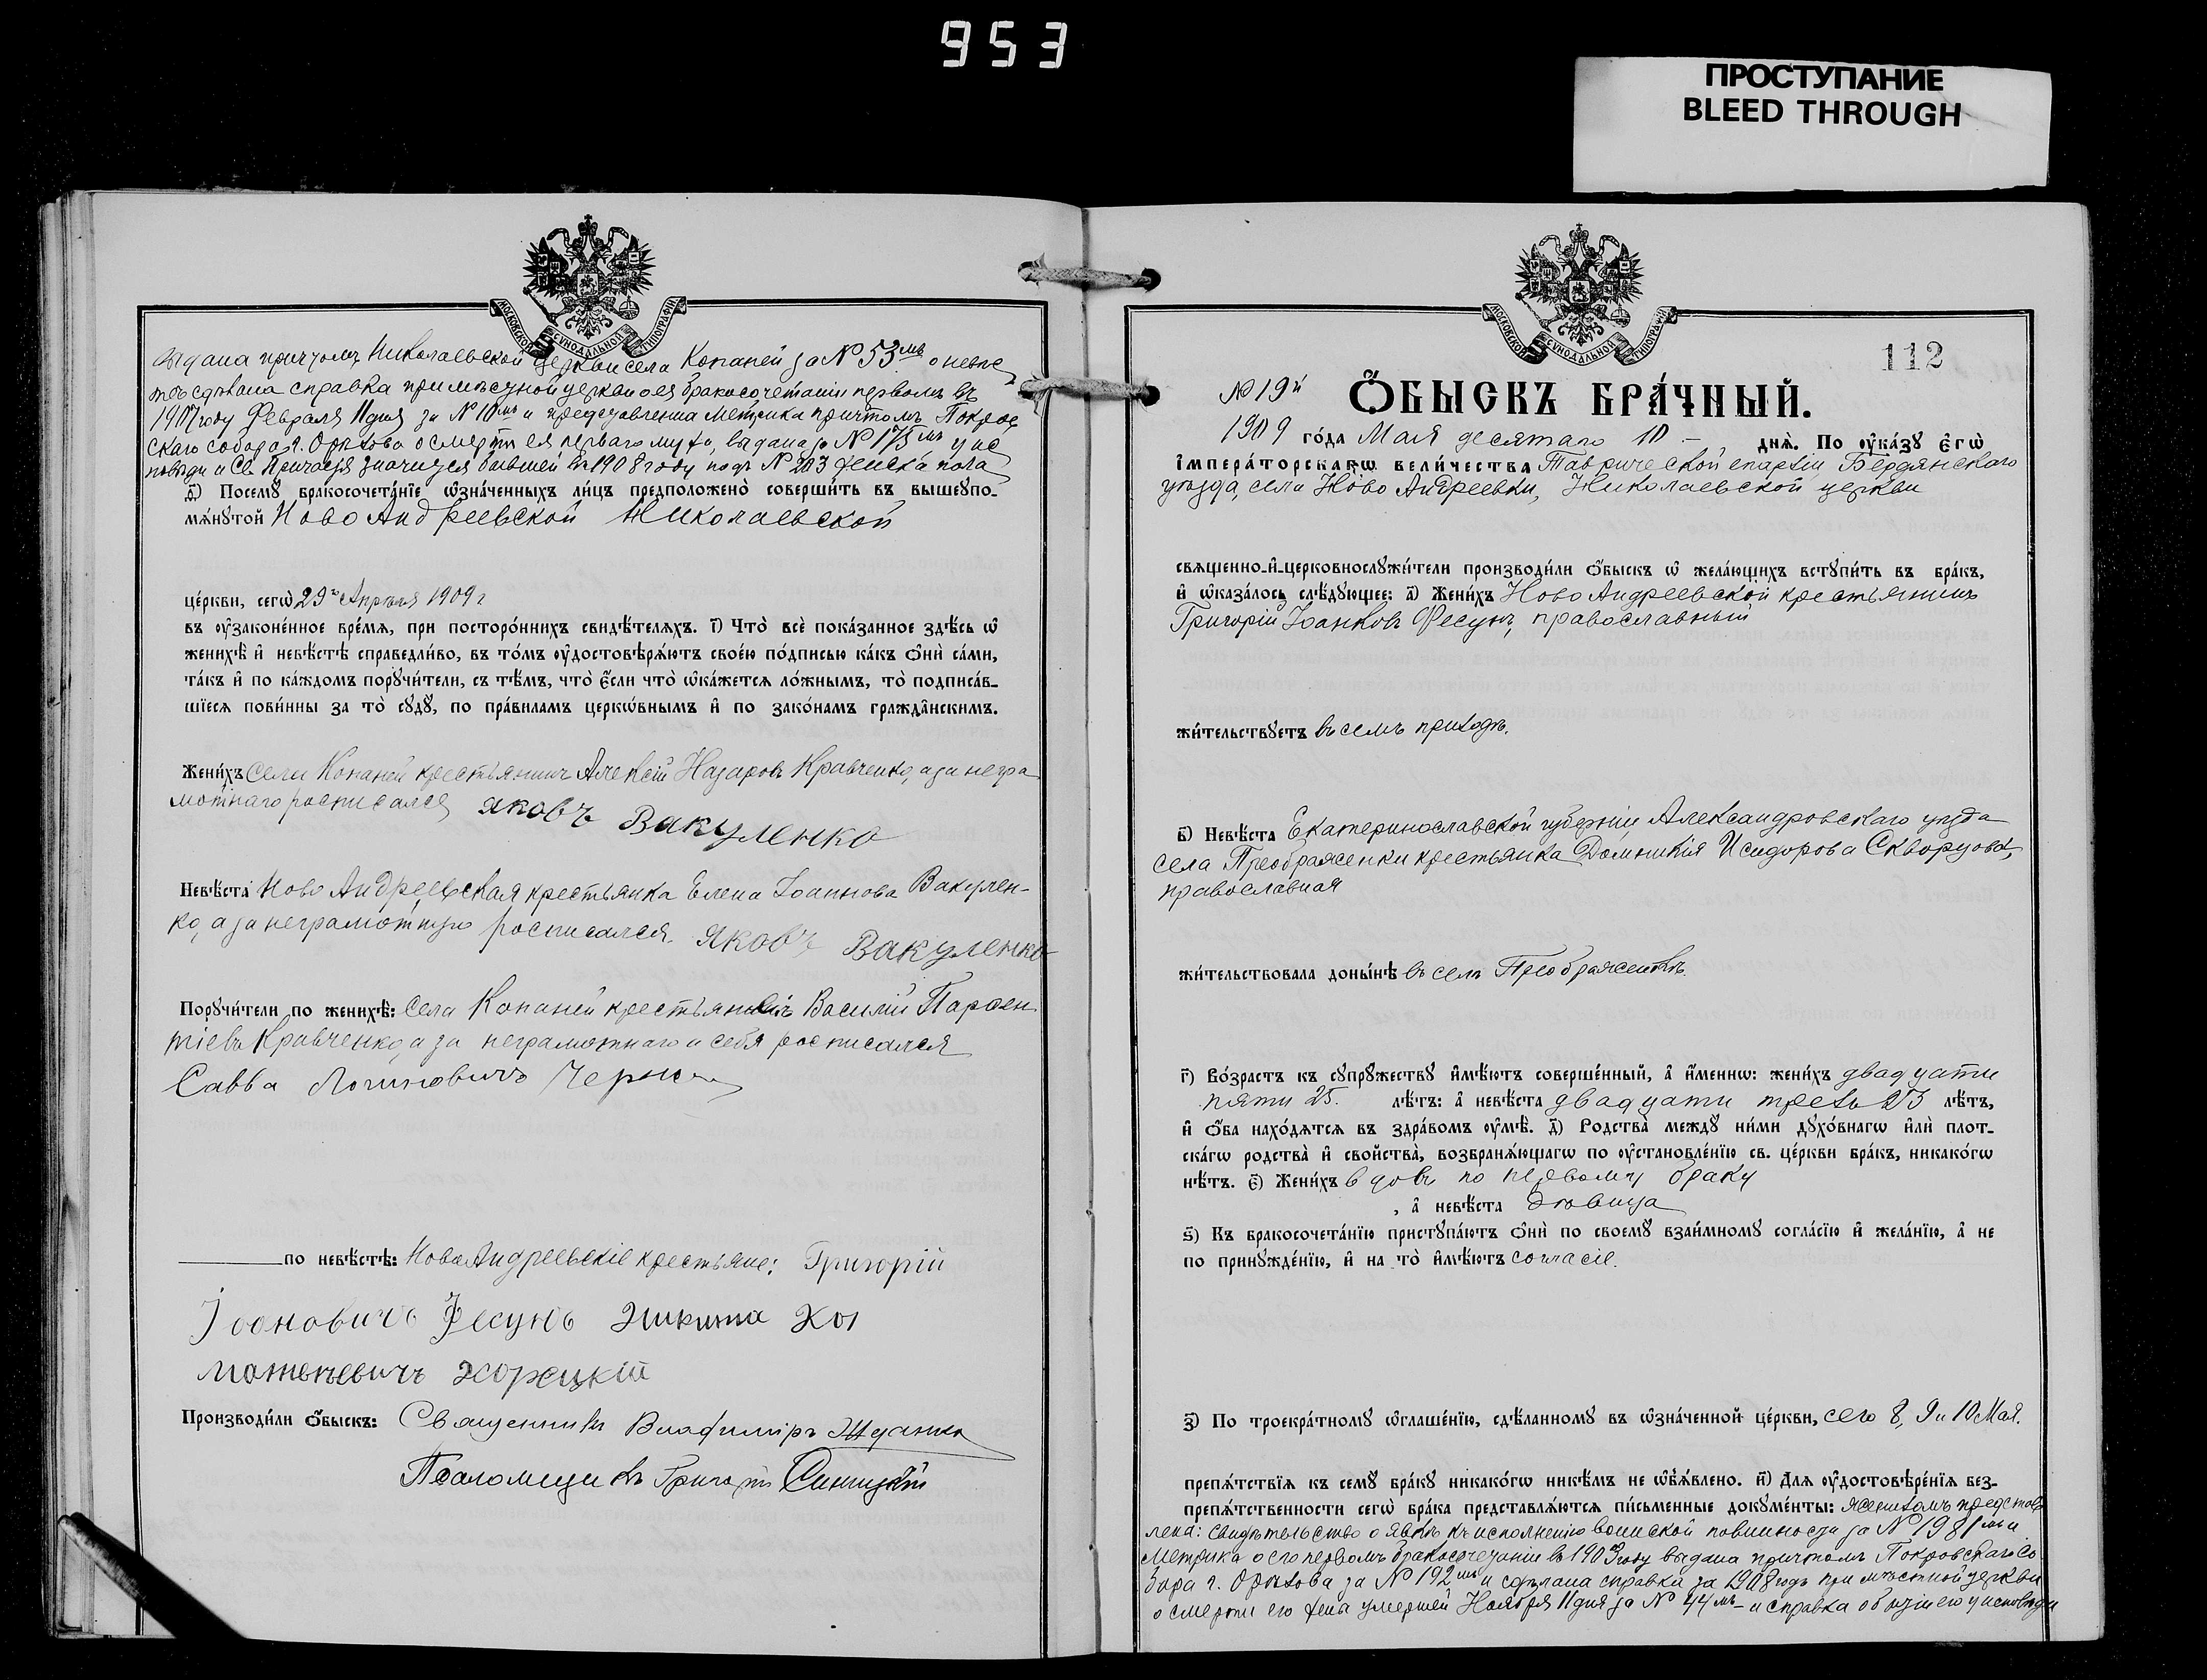 953
ПРОСТУПАНИЕ
BLEED THROUGH
МОСКОВСКОЙ СѴНОДАЛЬНОЙ ТИПОГРАФІИ
выдана причтомъ Николаевской церкви села Копаней за № 53мъ о невѣс
тѣ сдѣлана справка при мѣстной церкви о ея бракосочетаніи первомъ въ
1907 году Февраля 11 дня за № 10мъ и представлена метрика причтомъ Покров
скаго собора г. Орѣхова о смерти ея перваго мужа, выдана за № 175мъ у ис
повѣди и Св. Причастія значится бывшей въ 1908 году подъ № 203 женска пола
д҃) Посемꙋ̀ бракосочета́нїе ѡ҆зна́ченныхъ ли́цъ предположено̀ соверши́ть въ вышеупо-
мѧ́нꙋтой Ново Андреевской Николаевской
це́ркви, сегѡ̀ 29го Апрѣля 1909 г
въ ᲂу҆зако́ненное вре́мѧ, при посторо́ннихъ свидѣ́телѧхъ. і҃) Что̀ всѐ пока́занное здѣ́сь ѡ҆
женихѣ̀ и҆ невѣ́стѣ справедли́во, въ то́мъ ᲂу҆достовѣрѧ́ютъ свое́ю по́дписью ка́къ ѻ҆нѝ са́ми,
та́къ и҆ по ка́ждомъ порꙋчи́тели, съ тѣ́мъ, что̀ є҆́сли что̀ ѡ҆ка́жетсѧ ло́жнымъ, то̀ подписа́в-
шїесѧ пови́нны за то̀ сꙋдꙋ̀, по пра́виламъ церко́внымъ и҆ по зако́намъ гражда́нскимъ.
Жени́хъ села Копаней крестьянинъ Алексій Назаровъ Кравченко, а за негра
мотнаго росписался Яковъ Вакуленко
Невѣ́ста Ново Андреевская крестьянка Елена Іоаннова Вакулен-
ко, а за неграмотную росписался Яковъ Вакуленко
Порꙋчи́тели по женихѣ̀: села Копаней крестьянинъ Василій Парѳен
тіевъ Кравченко, а за неграмотнаго и себя росписался
Савва Логиновичъ
по невѣ́стѣ: Ново Андреевскіе крестьяне: Григорій
Іоановичъ Фесунъ Никита
Матвѣевичъ
Производи́ли ѻ҆́быскъ: Священникъ Владиміръ Жданко
Псаломщикъ Григорій Синицкій
МОСКОВСКОЙ СѴНОДАЛЬНОЙ ТИПОГРАФІИ
112
№ 19й
Ѻ҆́БЫСКЪ БРА́ЧНЫЙ.
1909 го́да Мая десятаго 10 – днѧ̀. По ᲂу҆ка́зꙋ є҆гѡ̀
і҆мпера́торскагѡ вели́чества Таврической епархіи Бердянскаго
уѣзда, села Ново Андреевки, Николаевской церкви
свѧщенно-и҆-церковнослꙋжи́тели производи́ли ѻ҆́быскъ ѡ҆ жела́ющихъ встꙋпи́ть въ бра́къ,
и҆ ѡ҆каза́лось слѣ́дꙋющее: а҃) Жени́хъ Ново Андреевской крестьянинъ
Григорій Іоанновъ Фесунъ, православный
жи́тельствꙋетъ въ семъ приходѣ.
в҃) Невѣ́ста Екатеринославской губерніи Александровскаго уѣзда
села Преображенки крестьянка Домникія Исидорова Скворцова,
православная
жи́тельствовала доны́нѣ въ селѣ Преображенкѣ.
г҃) Во́зрастъ къ сꙋпрꙋ́жествꙋ и҆мѣ́ютъ соверше́нный, а҆ и҆́меннѡ: жени́хъ двадцати
пяти 25. лѣ́тъ: а҆ невѣ́ста двадцати трехъ 23 лѣ́тъ,
и҆ ѻ҆́ба нахо́дѧтсѧ въ здра́вомъ ᲂу҆мѣ̀. д҃) Родства̀ междꙋ̀ ни́ми дꙋхо́внагѡ и҆лѝ плот-
ска́гѡ родства̀ и҆ сво́йства, возбранѧ́ющагѡ по ᲂу҆становле́нїю св. це́ркви бра́къ, никако́гѡ
нѣ́тъ. є҃) Жени́хъ вдовъ по первому браку
, а҆ невѣ́ста дѣвица
ѕ҃) Къ бракосочета́нїю пристꙋпа́ютъ ѻ҆нѝ по своемꙋ̀ взаи́мномꙋ согла́сїю и҆ жела́нїю, а҆ не
по принꙋжде́нїю, и҆ на то̀ и҆мѣ́ютъ согласіе.
з҃) По троекра́тномꙋ ѡ҆глаше́нїю, сдѣ́ланномꙋ въ ѡ҆зна́ченной це́ркви, сего 8, 9 и 10 Мая.
препѧ́тствїѧ къ семꙋ̀ бра́кꙋ никако́гѡ никѣ́мъ не ѡ҆бъѧ́влено. и҃) Длѧ ᲂу҆достовѣре́нїѧ без-
препѧ́тственности сегѡ̀ бра́ка представлѧ́ютсѧ пи́сьменные докꙋме́нты: женихомъ представ
лена: свидѣтельство о явкѣ къ исполненію воинской повинности за № 1981мъ и
Метрика о его первомъ бракосочетаніи въ 1903 году выдана причтомъ Покровскаго Со
бора г. Орѣхова за № 192мъ и сдѣлана справка за 1908 годъ при мѣстной церкви
о смерти его жены умершей Ноября 11 дня за № 44мъ – и справка о бытіи его у исповѣди